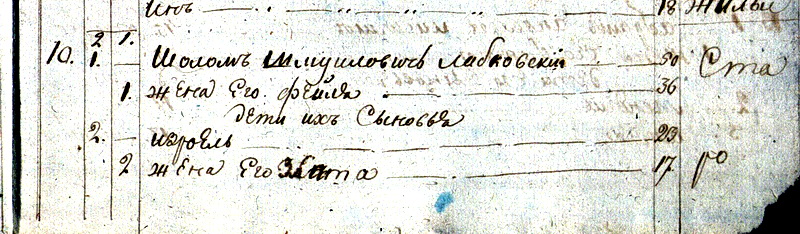 18 Жилы
2 1.
10. 1. Шоломъ Шмуиловичъ Лабковскiй 50 Ста
1. жена Его фейга 36
дети ихъ Сыновья
2. изроель 23
2 жена Его Злата 17 го